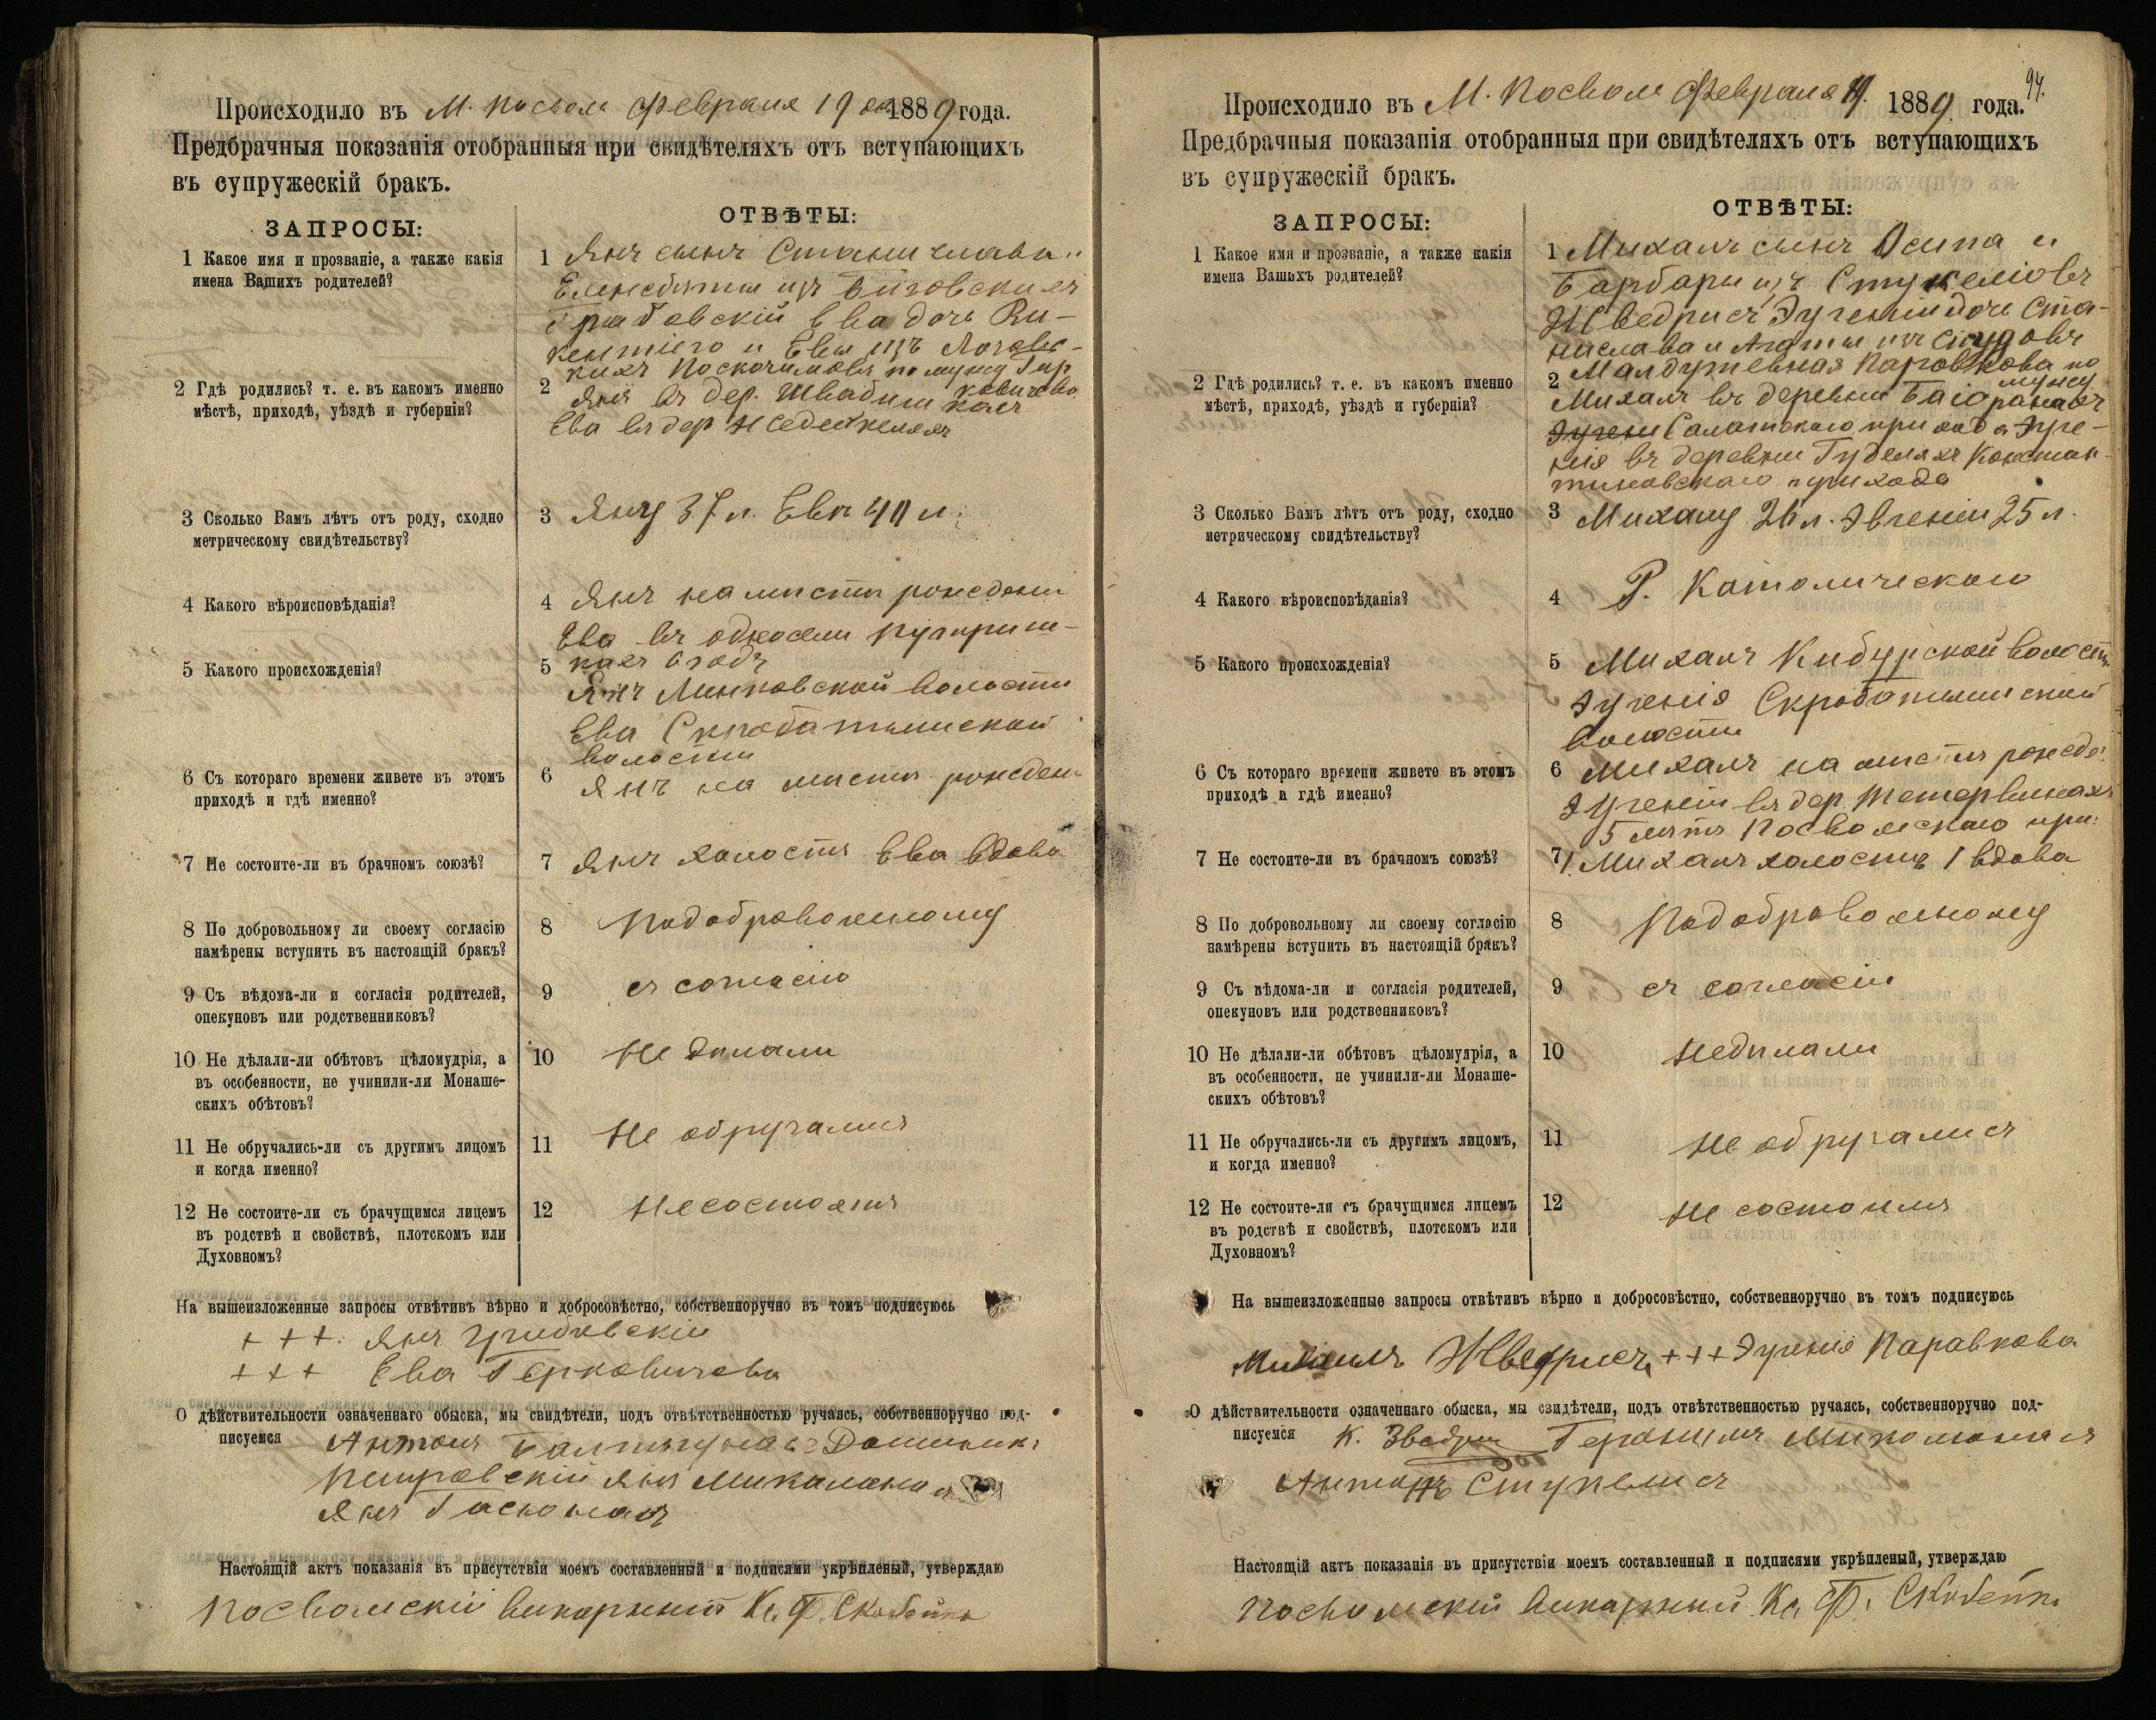 Происходило въ М. Посволь Февраля 19 дня 1889 года.
Предбрачныя показанія отобранныя при свидѣтеляхъ отъ вступающихъ
въ супружескій бракъ.
ЗАПРОСЫ:
ОТВѢТЫ:
1 Какое имя и прозваніе, а также какія
имена Вашихъ родителей?
1 Янъ сынъ Станислава и
Елисбеты изъ
Грибовскій Ева дочь Ви-
кентіего и Евы изъ
по мужу Гир
ковичова
2 Гдѣ родились? т. е. въ какомъ именно
мѣстѣ, приходѣ, уѣздѣ и губерніи?
2 Янъ въ дер.
Ева въ дер
3 Сколько Вамъ лѣтъ отъ роду, сходно
метрическому свидѣтельству?
3 Яну 37 л. Евѣ 40 л.
4 Какого вѣроисповѣданія?
4 Янъ на мисти рожедени
Ева въ
5 Какого происхожденія?
5
Янъ Минковской волости
Ева Скробатышской
волости
6 Съ котораго времени живете въ этомъ
приходѣ и гдѣ именно?
6 Янъ на мисти рожедени
7 Не состоите-ли въ брачномъ союзѣ?
7 Янъ холостъ Ева вдова
8 По добровольному ли своему согласію
намѣрены вступить въ настоящій бракъ?
8 Подобровольному
9 Съ вѣдома-ли и согласія родителей,
опекуновъ или родственниковъ?
9 съ согласію
10 Не дѣлали-ли обѣтовъ цѣломудрія, а
въ особенности, не учинили-ли Монаше-
скихъ обѣтовъ?
10 Не дилали
11 Не обручались-ли съ другимъ лицомъ
и когда именно?
11 Не обручались
12 Не состоите-ли съ брачущимся лицемъ
въ родствѣ и свойствѣ, плотскомъ или
Духовномъ?
12 Не состоятъ
На вышеизложенные запросы отвѣтивъ вѣрно и добросовѣстно, собственноручно въ томъ подписуюсь
+++. Янъ Грибовскій
+++ Ева Герковичова
О дѣйствительности означеннаго обыска, мы свидѣтели, подъ отвѣтственностью ручаясь, собственноручно под-
писуемся Антонъ Доминикъ
Петровскій Янъ Миколюнасъ
Янъ Гасюнасъ
Настоящій актъ показанія въ присутствіи моемъ составленный и подписями укрѣпленый, утверждаю
Посвольскій викарный Кс. Ф. Скобейко
94.
Происходило въ М. Посволь Февраля 19. 1889 года.
Предбрачныя показанія отобранныя при свидѣтеляхъ отъ вступающихъ
въ супружескій бракъ.
ЗАПРОСЫ:
ОТВѢТЫ:
1 Какое имя и прозваніе, а также какія
имена Вашихъ родителей?
1 Михалъ сынъ Осипа и
Барбары изъ Стукеліовъ
Жведрисъ Эугенія дочь Ста-
нислава и Агаты изъ
Паровкова по
мужу
2 Гдѣ родились? т. е. въ какомъ именно
мѣстѣ, приходѣ, уѣздѣ и губерніи?
2 Михалъ въ деревни Баіоранахъ
Эугени Салатскаго прихода Эуге-
нія въ деревни Гуделяхъ Констан-
тиновскаго прихода
3 Сколько Вамъ лѣтъ отъ роду, сходно
метрическому свидѣтельству?
3 Михалу 26 л. Эвгеніи 25 л.
4 Какого вѣроисповѣданія?
4 Р. Католическаго
5 Какого происхожденія?
5 Михалъ Кибурской волости
Эугенія Скробатышской
волости
6 Съ котораго времени живете въ этомъ
приходѣ и гдѣ именно?
6 Михалъ на мистъ рожеде:
Эугеніи въ дер. Тетервинахъ
5 лѣтъ Посвольскаго при:
7 Не состоите-ли въ брачномъ союзѣ?
7 Михалъ холостъ / вдова
8 По добровольному ли своему согласію
намѣрены вступить въ настоящій бракъ?
8 Подобровольному
9 Съ вѣдома-ли и согласія родителей,
опекуновъ или родственниковъ?
9 съ согласіи
10 Не дѣлали-ли обѣтовъ цѣломудрія, а
въ особенности, не учинили-ли Монаше-
скихъ обѣтовъ?
10 Недилали
11 Не обручались-ли съ другимъ лицомъ,
и когда именно?
11 Не обручались
12 Не состоите-ли съ брачущимся лицемъ
въ родствѣ и свойствѣ, плотскомъ или
Духовномъ?
12 Не состоилъ
На вышеизложенные запросы отвѣтивъ вѣрно и добросовѣстно, собственноручно въ томъ подписуюсь
Михаилъ Жведрисъ, +++ Эугенія Паравкова
О дѣйствительности означеннаго обыска, мы свидѣтели, подъ отвѣтственностью ручаясь, собственноручно под-
писуемся К. Зведрис Геронимъ Миколюнасъ
Антонъ Стукелисъ
Настоящій актъ показанія въ присутствіи моемъ составленный и подписями укрѣпленый, утверждаю
Посвольскій Викарный Кс. Ф. Скобейко